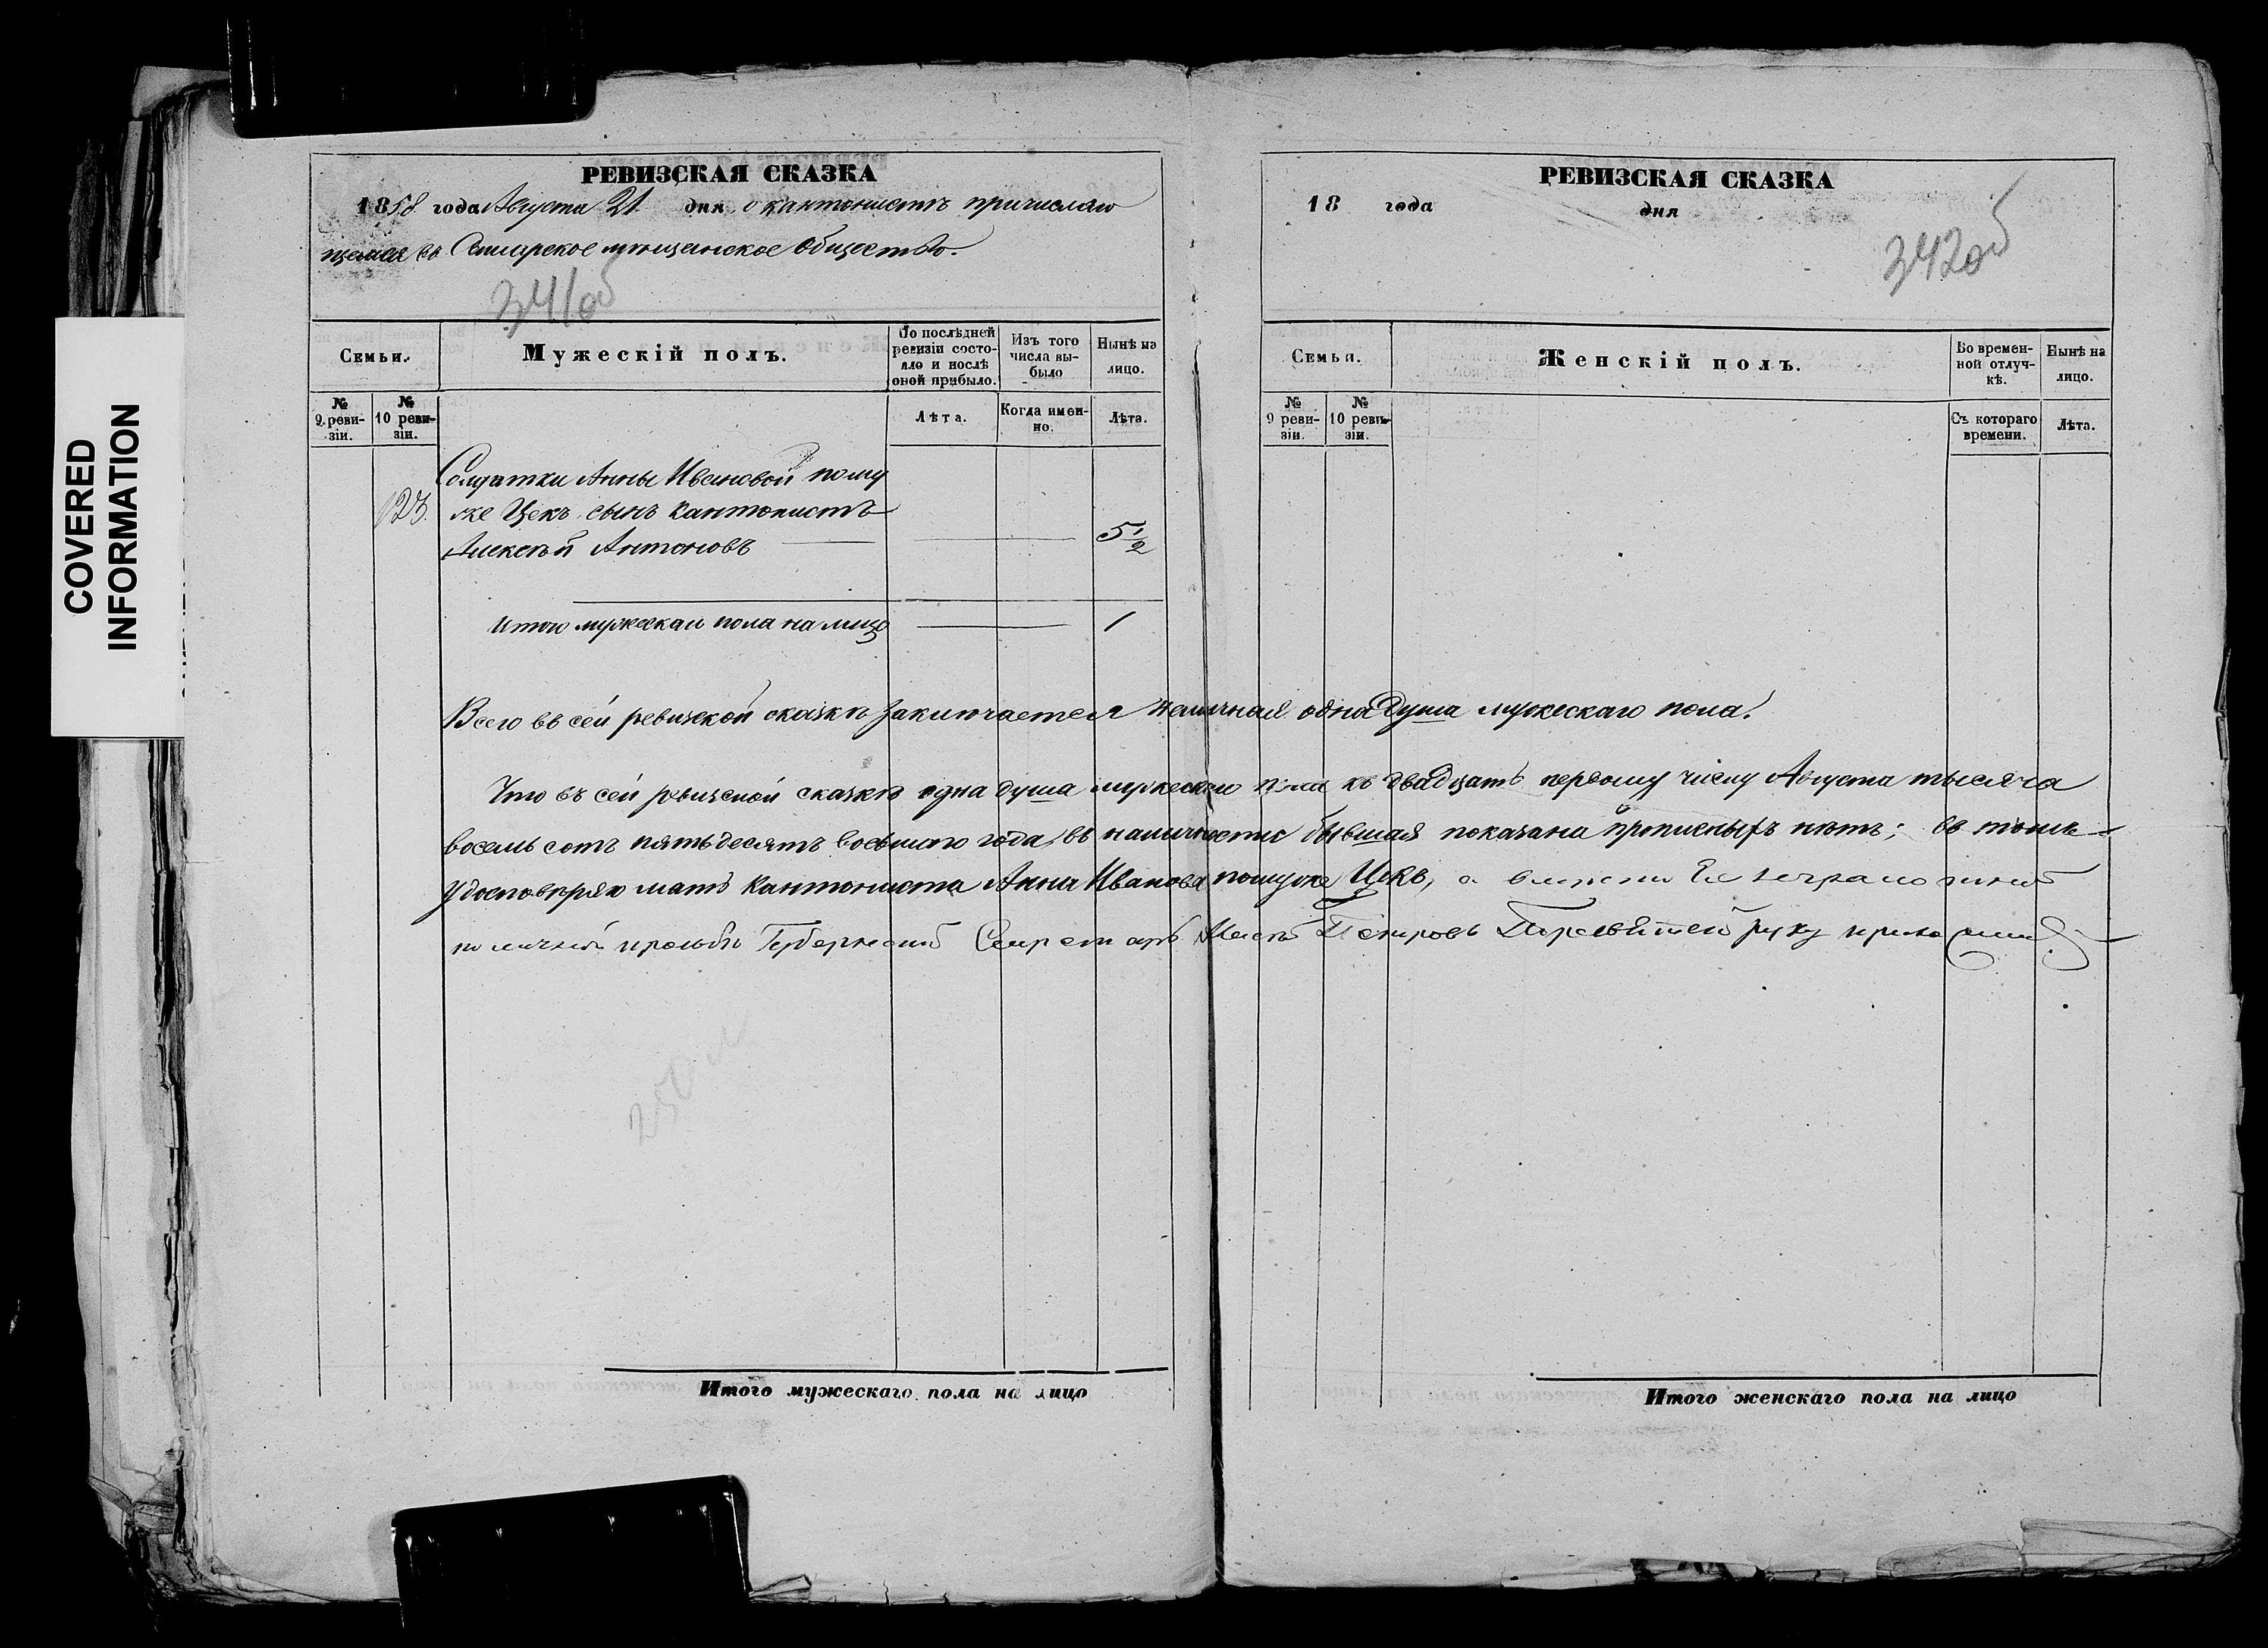 COVERED
INFORMATION
РЕВИЗСКАЯ СКАЗКА
1858 года Августа 21 дня о кантонистѣ причисляю
щемся въ мѣщанское общество.
341об
Семьи.
Мужескій полъ.
По послѣдней
ревизіи состо-
яло и послѣ
оной прибыло.
Изъ того
числа вы-
было
Нынѣ на
лицо.
№
9 реви-
зіи.
№
10 реви-
зіи.
Лѣта.
Когда имен-
но.
Лѣта.
Солдатки Анны Ивановой пому
123. же Цекъ сынъ кантонистъ
Алексѣй Антоновъ 5 1/2
Итого мужескаго пола на лицо 1
РЕВИЗСКАЯ СКАЗКА
18 года дня
342об
Семьи.
Женскій полъ.
Во времен-
ной отлуч-
кѣ.
Нынѣ на
лицо.
№
9 реви-
зіи.
№
10 реви-
зіи.
Съ котораго
времени.
Лѣта.
Всего въ сей ревизской сказкѣ заключается наличная одна душа мужескаго пола.
Что въ сей ревизской сказкѣ одна душа мужескаго пола къ двадцать первому числу Августа тысяча
восемь сотъ пятьдесятъ восьмаго года въ наличности бывшая показана прописныхъ нѣтъ; въ томъ
удостовѣряю мать кантониста Анна Иванова помуже Цекъ, а вмѣсто Ея неграмотной
по личной прозьбѣ Губернскій Секретарь Петровъ руку приложилъ
250
Итого мужескаго пола на лицо
Итого женскаго пола на лицо